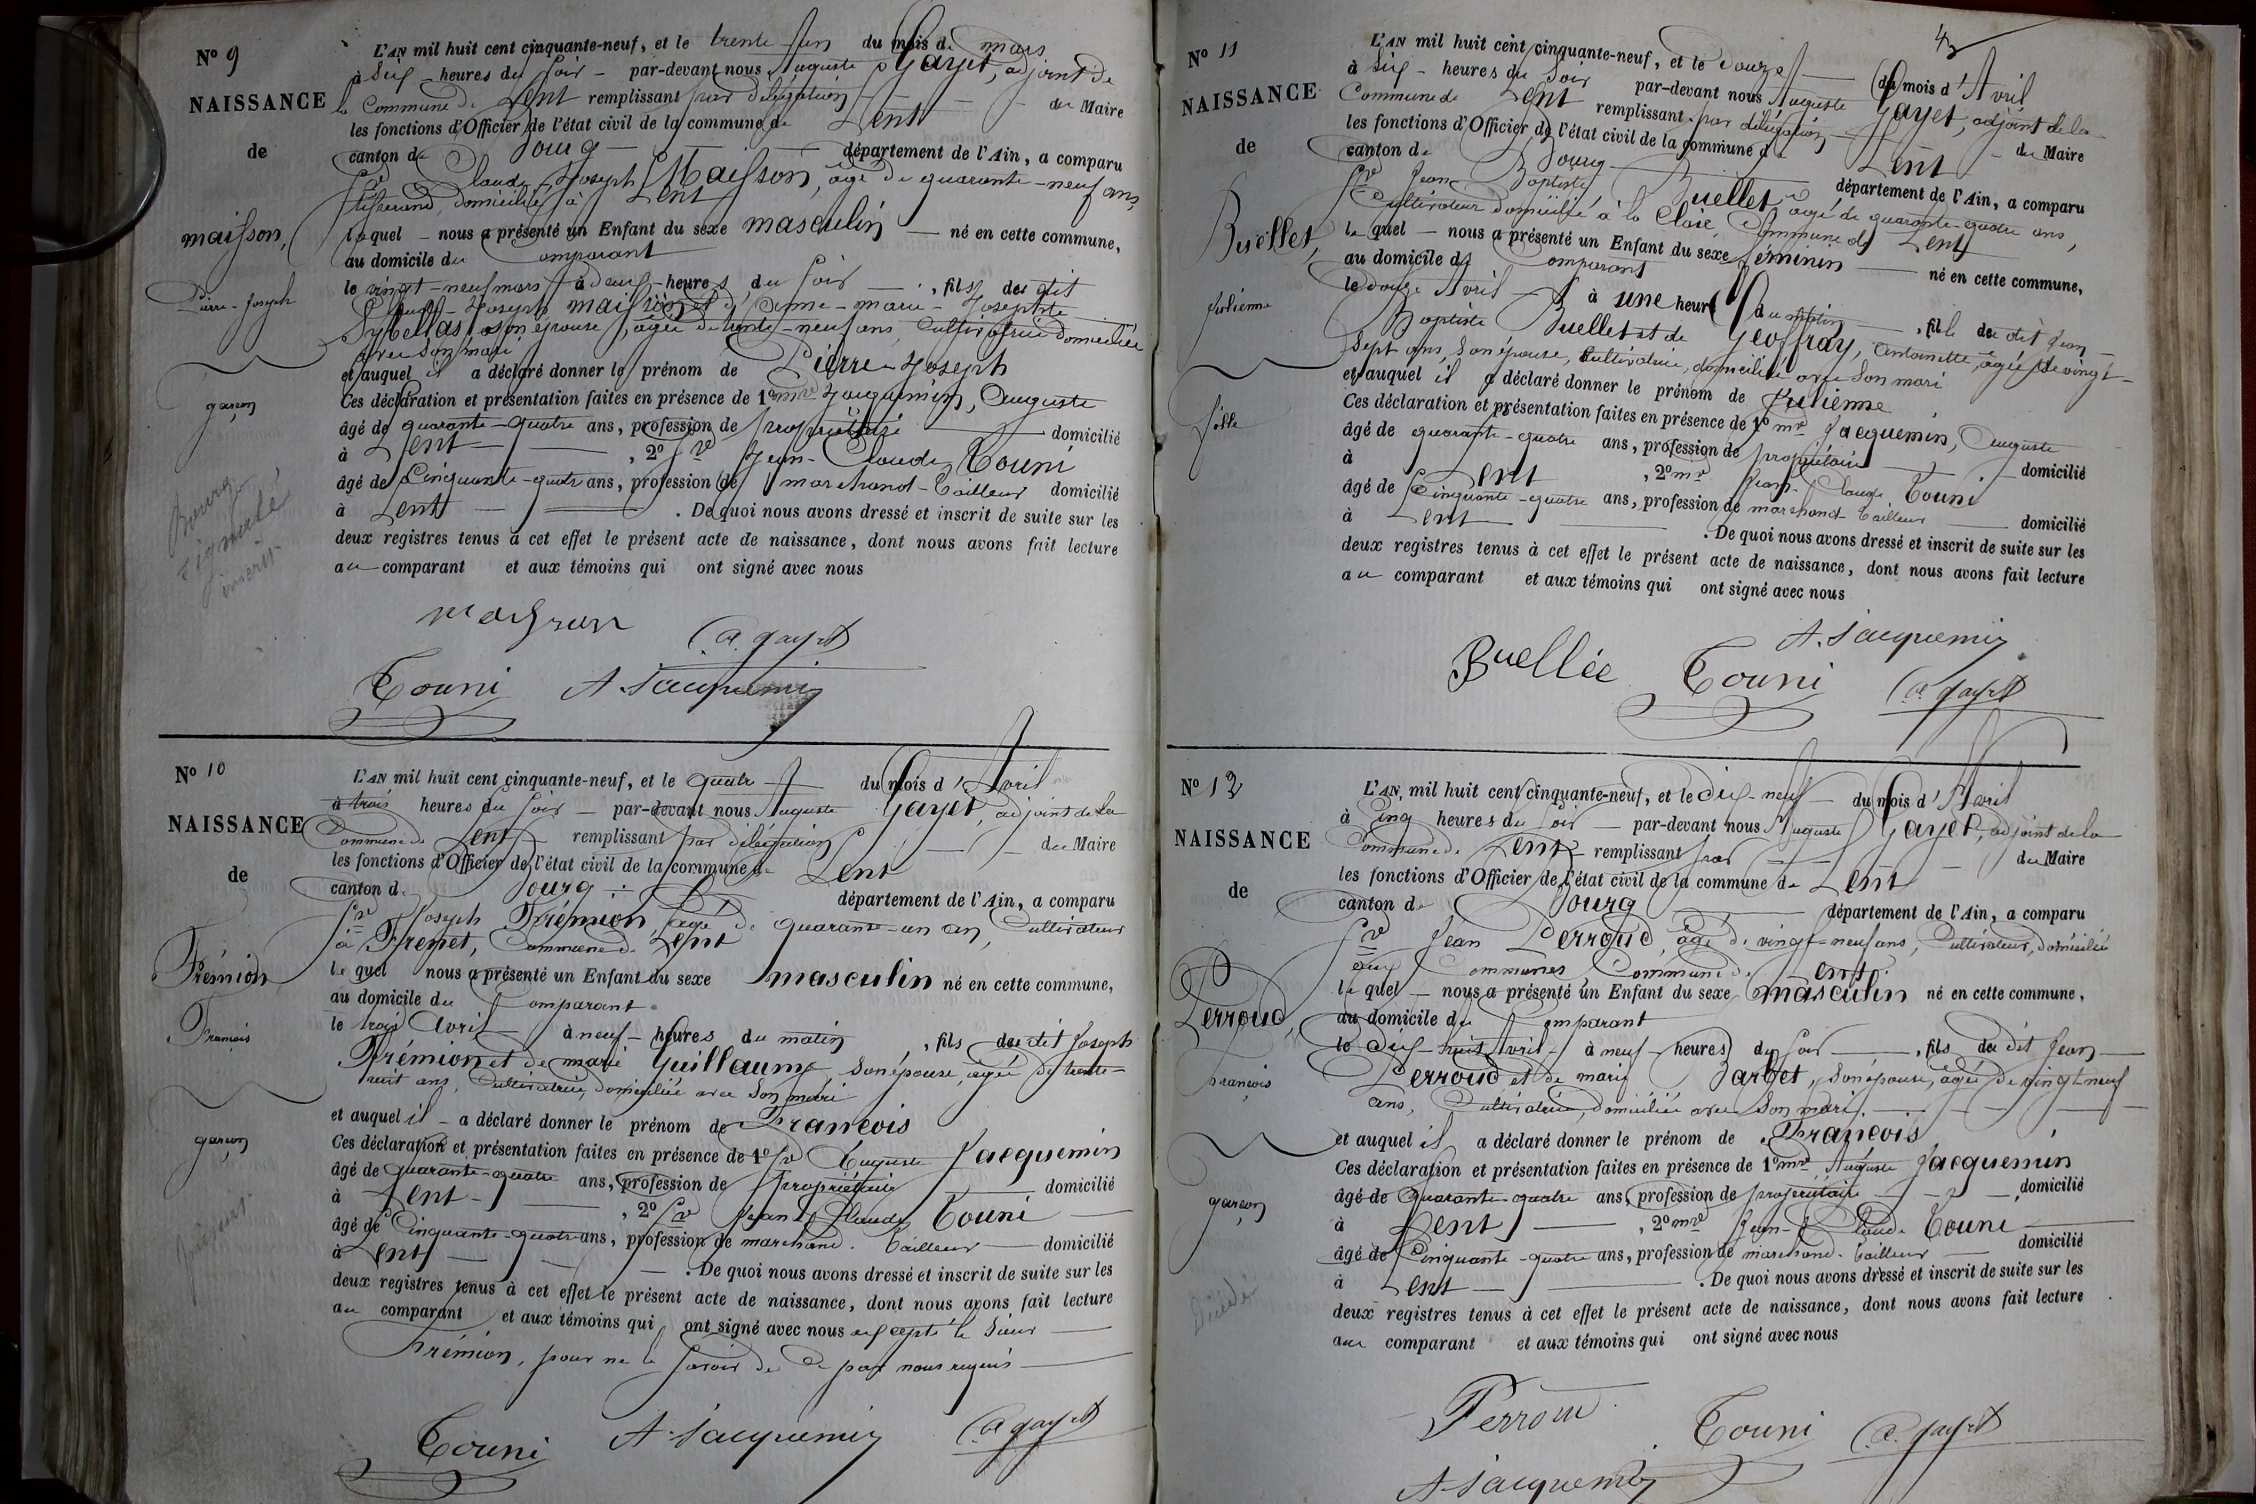 No 9
NAISSANCE
de
Maisson,
Pierre-Joseph
garçon
L'AN mil huit cent cinquante-neuf, et le trente un du mois de mars
à six heures du soir - par-devant nous Auguste Gayet, adjoint de
la Commune de Lent remplissant par délégation du Maire
les fonctions d'Officier de l'état civil de la commune de Lent
canton de Bourg département de l'Ain, a comparu
Sr Claude Joseph Maisson, âgé de quarante-neuf ans,
tisserand, domicilié à Lent
lequel - nous a présenté un Enfant du sexe masculin né en cette commune,
au domicile du Comparant
le vingt-neuf mars à deux heures du soir, fils du dit
Claude-Joseph Maisson et d'Anne-marie-Josephte
son épouse, âgée de trente-neuf ans, Cultivatrice domiciliée
avec son mari
et auquel il a déclaré donner le prénom de Pierre-Joseph
Ces déclaration et présentation faites en présence de 1o mr Jacquemin, Auguste
âgé de quarante-quatre ans, profession de propriétaire domicilié
à Lent, 2o Sr Jean-Claude Touni
âgé de Cinquante-quatre ans, profession de marchand-tailleur domicilié
à Lent. De quoi nous avons dressé et inscrit de suite sur les
deux registres tenus à cet effet le présent acte de naissance, dont nous avons fait lecture
au comparant et aux témoins qui ont signé avec nous
Maisson
A. Gayet
Touni A. Jacquemin
No 10
NAISSANCE
de
Frémion
François
garçon
L'AN mil huit cent cinquante-neuf, et le quatre du mois d'Avril
à trois heures du soir - par-devant nous Auguste Gayet, adjoint de la
Commune de Lent remplissant par délégation du Maire
les fonctions d'Officier de l'état civil de la commune de Lent
canton de Bourg département de l'Ain, a comparu
Sr Joseph Frémion, âgé de quarante-un an, Cultivateur
à Fremet, Commune de Lent
lequel nous a présenté un Enfant du sexe masculin né en cette commune,
au domicile du Comparant
le trois Avril à neuf heures du matin, fils du dit Joseph
Frémion et de marie Guillaume, son épouse, âgée de trente-
huit ans, Cultivatrice, domiciliée avec son mari
et auquel il - a déclaré donner le prénom de François
Ces déclaration et présentation faites en présence de 1o Sr Auguste Jacquemin
âgé de quarante-quatre ans, profession de propriétaire domicilié
à Lent, 2o Sr Jean Claude Touni
âgé de Cinquante-quatre ans, profession de marchand-tailleur domicilié
à Lent. De quoi nous avons dressé et inscrit de suite sur les
deux registres tenus à cet effet le présent acte de naissance, dont nous avons fait lecture
au comparant et aux témoins qui ont signé avec nous excepté le Sieur
Frémion, pour ne le savoir de ce par nous requis
Touni A. Jacquemin A. Gayet
No 11
NAISSANCE
de
Buellet,
Julienne
fille
L'AN mil huit cent cinquante-neuf, et le douze du mois d'Avril
à six - heures du soir par-devant nous Auguste Gayet, adjoint de la
Commune de Lent remplissant par délégation du Maire
les fonctions d'Officier de l'état civil de la commune de Lent
canton de Bourg département de l'Ain, a comparu
Sr Jean Baptiste Buellet, âgé de quarante-quatre ans,
Cultivateur domicilié à la Claie, Commune de Lent
lequel - nous a présenté un Enfant du sexe féminin né en cette commune,
au domicile du Comparant
le douze Avril à une heure du matin, fille du dit Jean
Baptiste Buellet et de Geoffray, Antoinette, âgée de vingt-
sept ans, son épouse, Cultivatrice, domiciliée avec son mari
et auquel il a déclaré donner le prénom de Julienne
Ces déclaration et présentation faites en présence de 1o mr Jacquemin, Auguste
âgé de quarante-quatre ans, profession de propriétaire domicilié
à Lent, 2o mr Jean-Claude Touni
âgé de Cinquante-quatre ans, profession de marchand-tailleur domicilié
à Lent. De quoi nous avons dressé et inscrit de suite sur les
deux registres tenus à cet effet le présent acte de naissance, dont nous avons fait lecture
au comparant et aux témoins qui ont signé avec nous
A. Jacquemin
Buellée Touni A. Gayet
No 12
NAISSANCE
de
Perroud,
François
garçon
L'AN mil huit cent cinquante-neuf, et le dix-neuf du mois d'Avril
à Cinq heures du soir - par-devant nous Auguste Gayet, adjoint de la
Commune de Lent remplissant par du Maire
les fonctions d'Officier de l'état civil de la commune de Lent
canton de Bourg département de l'Ain, a comparu
Sr Jean Perroud, âgé de vingt-neuf ans, Cultivateur, domicilié
aux Communes, Commune de Lent
lequel - nous a présenté un Enfant du sexe masculin né en cette commune,
au domicile du Comparant
le dix-huit Avril à neuf heures du soir, fils du dit Jean
Perroud et de marie Barbet, son épouse, âgée de vingt neuf
ans, Cultivatrice, domiciliée avec son mari.
et auquel il a déclaré donner le prénom de François
Ces déclaration et présentation faites en présence de 1o mr Auguste Jacquemin
âgé de quarante-quatre ans, profession de propriétaire, domicilié
à Lent, 2o mr Jean-Claude Touni
âgé de Cinquante-quatre ans, profession de marchand-tailleur domicilié
à Lent. De quoi nous avons dressé et inscrit de suite sur les
deux registres tenus à cet effet le présent acte de naissance, dont nous avons fait lecture
au comparant et aux témoins qui ont signé avec nous
Perroud Touni A. Gayet
A. Jacquemin